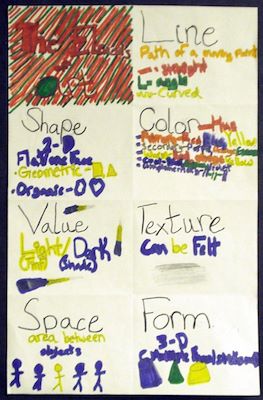 The Elements
of
Art
Line
Path of a moving point
— = straight
L = angle
= Curved
Shape
2-D
Flat one Face
- Geometric -
- Organic -
Color - Hue
Primary - Red Blue Yellow
Value
Light / Dark
(Tint) (Shade)
Texture
Can be Felt
Space
area between
objects
Form
3-D